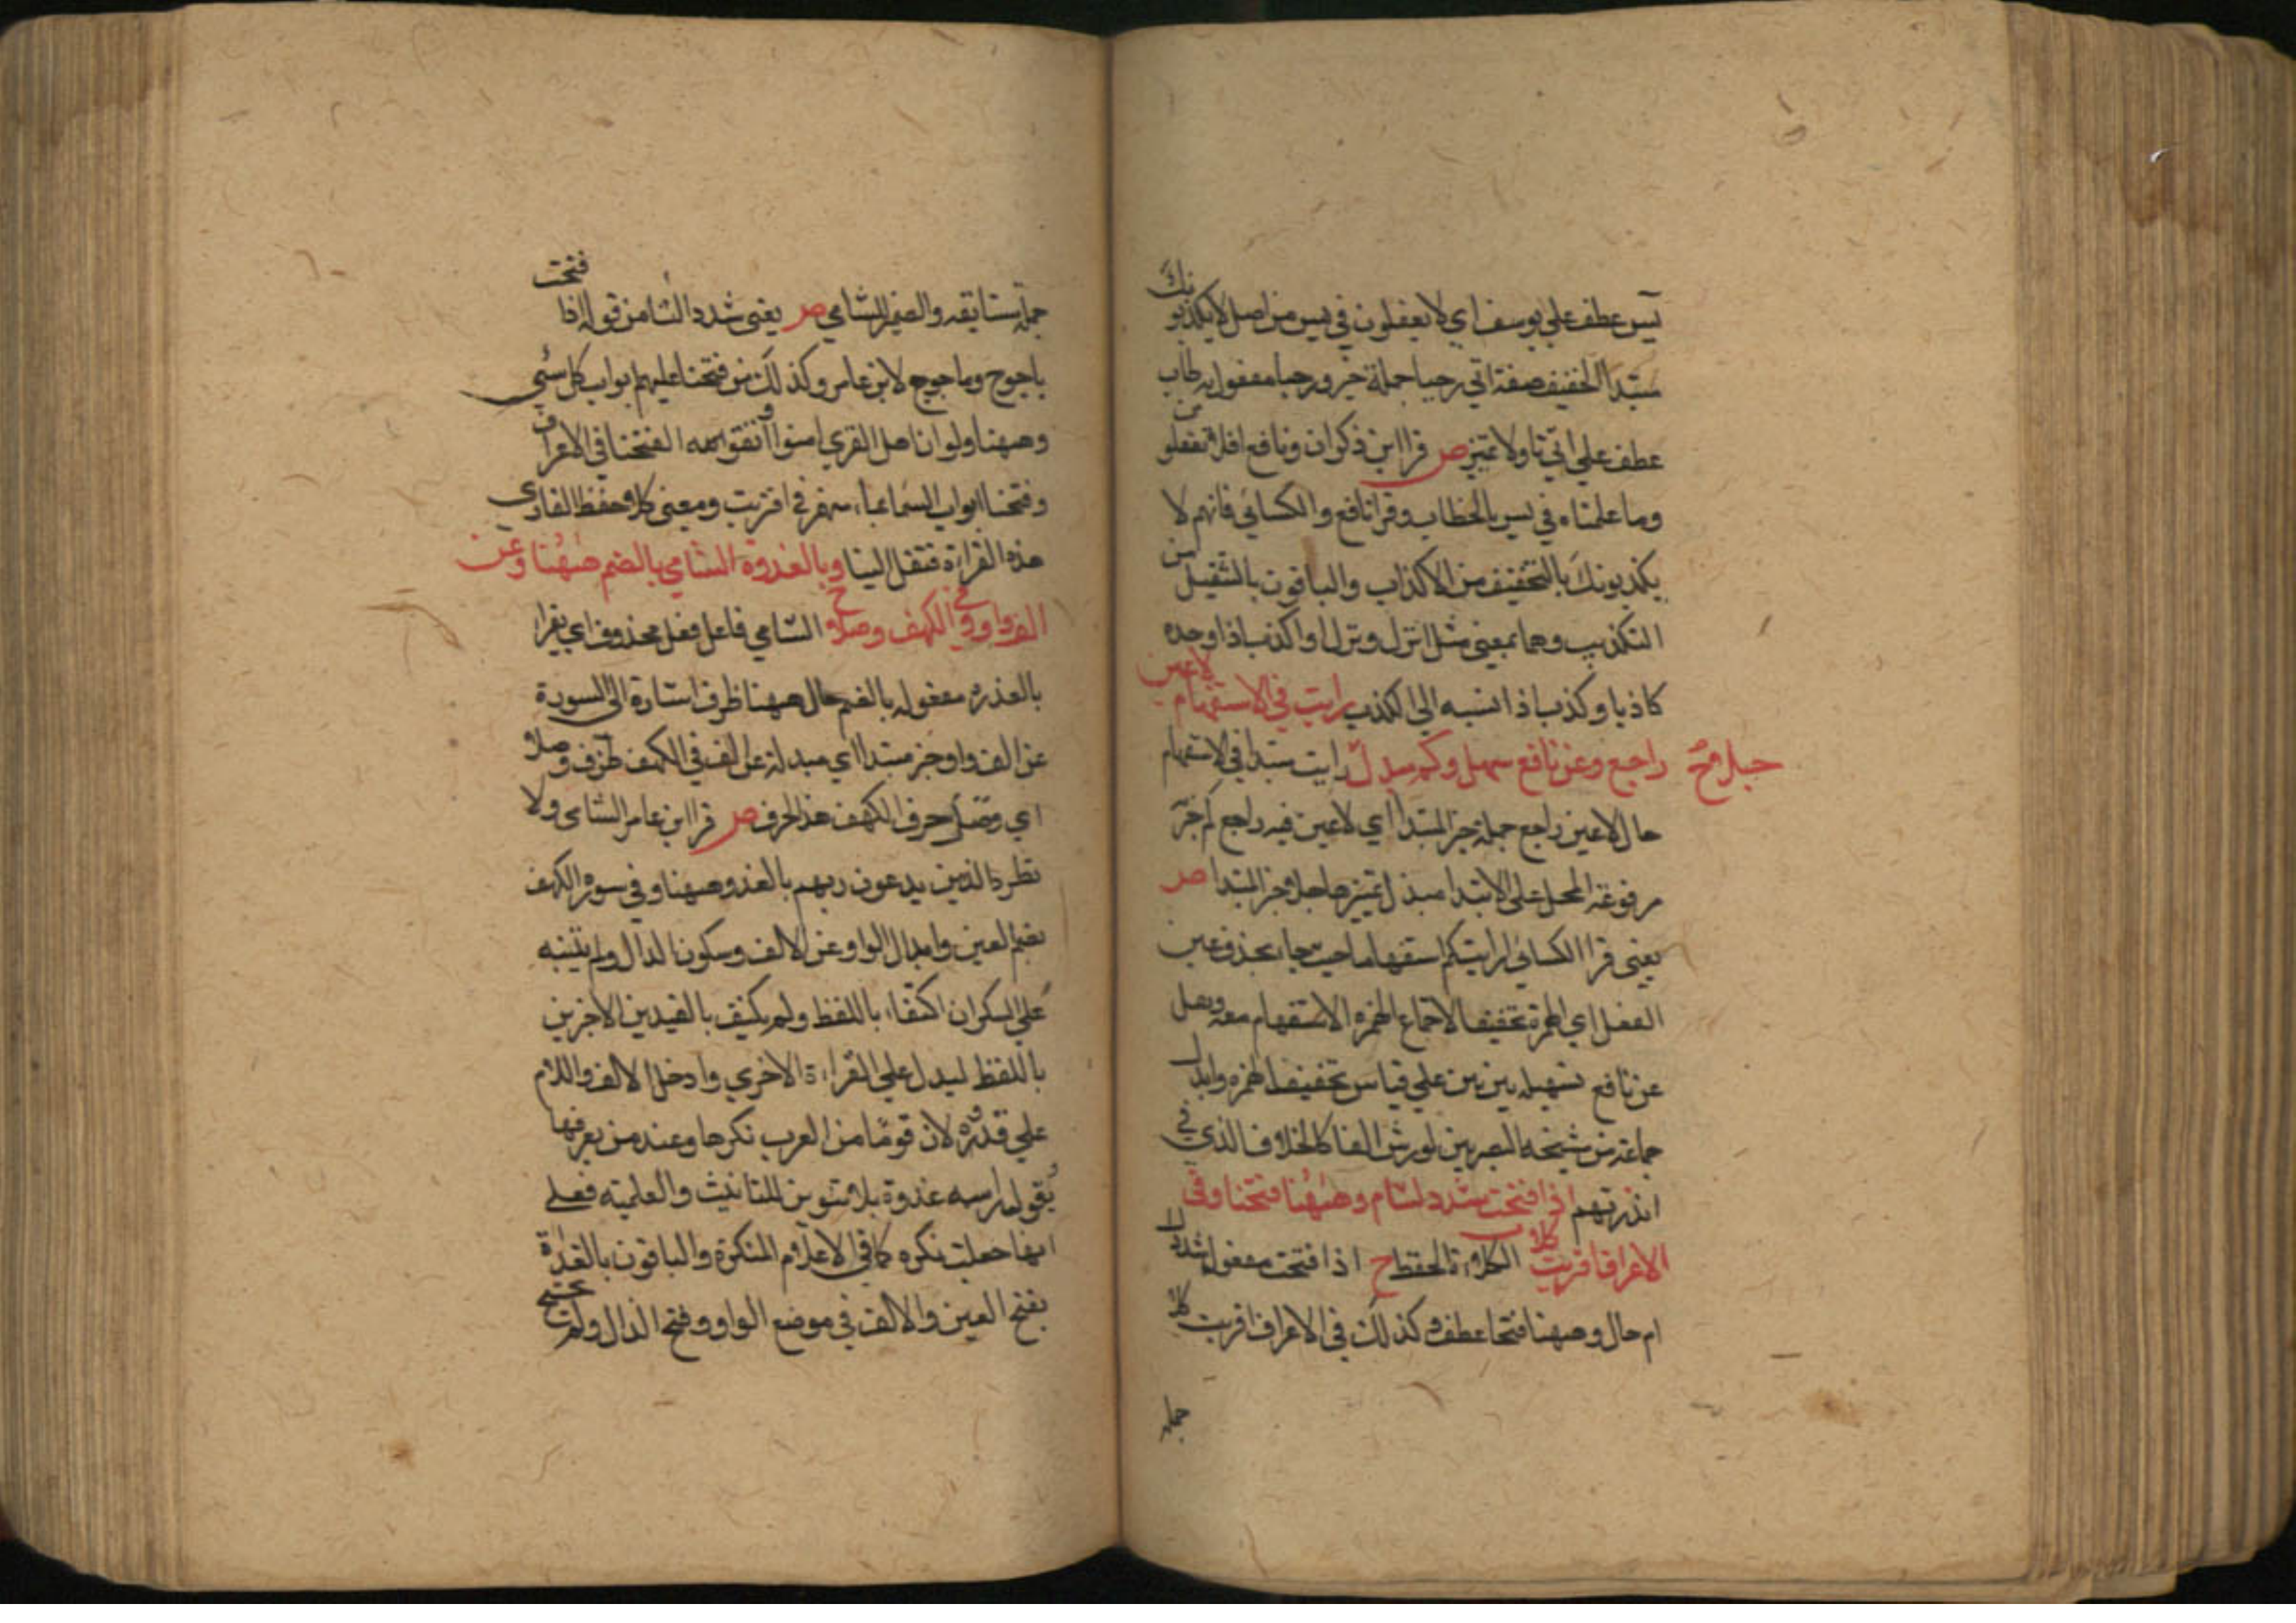 يس عطف علي يوسف اي لا يعقلون في يس من اصل لا يكذبونك
مبتدا الخفيف صفة اتي رحبا جملة خبر ورحبا مفعول به طاب
عطف علي اتي تاولا تميز ص قرا ابن ذكوان ونافع افلا تعقلون
وما علمناه في يس بالخطاب وقرا نافع والكسائي فانهم لا
يكذبونك بالتخفيف من الاكذاب والباقون بالتثقيل من
التكذيب وهما بمعني مثل انزل ونزل او اكذب اذا وجده
كاذبا وكذب اذا نسبه الي الكذب رايت في الاستفهام لا عين
راجع وعن نافع سهل وكم مبدل جلا ح رايت مبتدا في الاستفهام
حال لا عين راجع جملة خبر المبتدا اي لا عين فيه راجع كم خبر
مرفوعة المحل علي الابتدا مبدل تميزها جلا خبر المبتدا ص
يعني قرا الكسائي ارايتكم استفهاما حيث جا بحذف عين
الفعل اي الهمزة تخفيفا لاجتماع الهمزه الاستفهام معه ونقل
عن نافع تسهيله بين بين علي قياس تخفيف الهمزه وابدل
جماعة من شيخه المصريين لورش الفا كالخلاف الذي في
انذرتهم اذا فتحت شدد لشام وههنا فتحنا وفي
الاعراف اقتربت كلا ب الكلاءة الحفظ ح اذا فتحت مفعول شدد ل
ام حال وههنا فتحنا عطف وكذلك في الاعراف اقربت كلا
جملة
جملة مستانفه والضمير للشامي ص يعني شدد التا من قوله اذا فتحت
ياجوج وماجوج لابن عامر وكذلك من فتحنا عليهم ابواب كل شي
وههنا ولو ان اهل القري امنوا واتقوا لفتحنا في الاعراف
وفتحنا ابواب السماء بماء منهمر في اقتربت ومعني كلا حفظ القاري
هذه القراءة فنقل الينا وبالغدوة الشامي بالضم ههنا وعن
الف واو وفي الكهف وصلا ح الشامي فاعل فعل محذوف اي يقرا
بالغدوه مفعوله بالضم حال ههنا ظرف اشارة الي السورة
عن الف واو خبر مبتدا اي مبدلة عن الف في الكهف ظرف وصلا
اي وصل حرف الكهف هذا الحرف ص قرا ابن عامر الشامي ولا
تطرد الذين يدعون ربهم بالغدو ههنا وفي سورة الكهف
بضم العين وابدال الواو عن الالف وسكون الدال ولم ينبه
علي السكون اكتفاء باللفظ ولم يكتف بالقيدين الاخرين
باللفظ ليدل علي القراءة الاخري وادخل الالف واللام
علي غدوة لان قوما من العرب نكرها وعند من يعرفها
يقول راسه غدوة بلا تنوين للتانيث والعلمية فعلي
انها جعلت نكره كما في الاعلام المنكرة والباقون بالغداة
بفتح العين والالف في موضع الواو وفتح الدال ولم يحتج